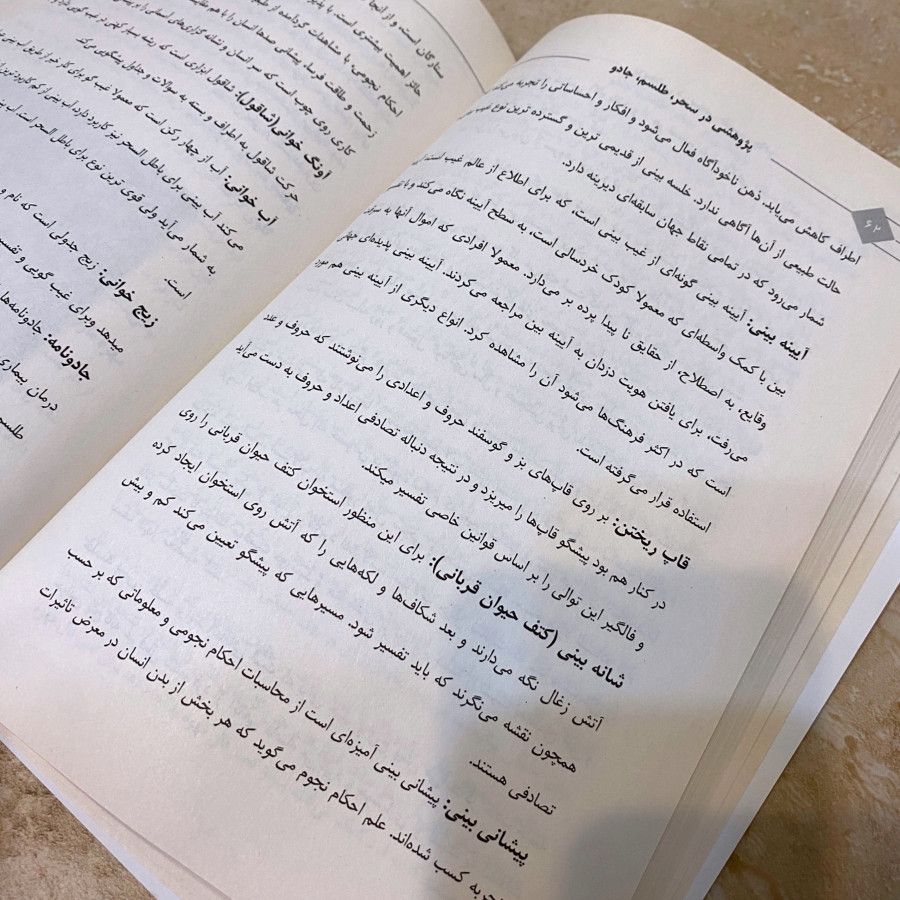 پژوهشی در سحر، طلسم، جادو
اطراف کاهش می‌یابد. ذهن ناخودآگاه فعال می‌شود و افکار و احساساتی را تجربه می‌کند
حالت طبیعی از آن‌ها آگاهی ندارد. خلسه بینی از قدیمی ترین و گسترده ترین نوع غیب
شمار می‌رود که در تمامی نقاط جهان سابقه‌ای دیرینه دارد.
آیینه بینی: آیینه بینی گونه‌ای از غیب بینی است، که برای اطلاع از عالم غیب است
بین با کمک واسطه‌ای که معمولا کودک خردسالی است، به سطح آیینه نگاه می‌کند و با
وقایع، به اصطلاح، از حقایق نا پیدا پرده بر می‌دارد. معمولا افرادی که اموال آنها به سرقت
می‌رفت، برای یافتن هویت دزدان به آیینه بین مراجعه می‌کردند. آیینه بینی پدیده‌ای جهانی
است که در اکثر فرهنگ‌ها می‌شود آن را مشاهده کرد. انواع دیگری از آیینه بینی هم مورد
استفاده قرار می‌گرفته است.
قاپ ریختن: بر روی قاپ‌های بز و گوسفند حروف و اعدادی را می‌نوشتند که حروف و عدد
در کنار هم بود پیشگو قاپ‌ها را میریزد و در نتیجه دنباله تصادفی اعداد و حروف به دست می‌آید
و فالگیر این توالی را بر اساس قوانین خاصی تفسیر میکند.
شانه بینی (کتف حیوان قربانی): برای این منظور استخوان کتف حیوان قربانی را روی
آتش زغال نگه می‌دارند و بعد شکاف‌ها و لکه‌هایی را که آتش روی استخوان ایجاد کرده
همچون نقشه می‌نگرند که باید تفسیر شود. مسیرهایی که پیشگو تعیین می‌کند کم و بیش
تصادفی هستند.
پیشانی بینی: پیشانی بینی آمیزه‌ای است از محاسبات احکام نجومی و معلوماتی که بر حسب
تجربه کسب شده‌اند. علم احکام نجوم می گوید که هر بخش از بدن انسان در معرض تاثیرات
ستارگان است، و از اینجا
حائز اهمیت بیشتری است، با
احکام نجومی، با مشاهدات گردآمده از
زحمت و طاقت فرسا، پیشانی صدها انسان را با هم
کاری روی چوب است که سر انسان و نشانه گزاری‌های انسان را
آونگ خوانی(شاقول): شاقول ابزاری است که ریشه بسیار کهن در غیب گویی دارد
حرکت شاقول به اطراف و بسته به سوالات و جداول پیشگویی می‌کند
آب خوانی: آب از چهار رکن است که معمولا غیب گو برای کار
می‌کند آب بینی برای باطل السحر نیز کاربرد دارد؛ آب بینی از کم کاربرد ترین
به شمار می‌آید ولی قوی ترین نوع برای باطل السحر است
است.
زیج خوانی: زیج جدولی است که نام و
میدهد وبرای غیب گویی و تفسیر
جادونامه: جادونامه‌ها
درمان بیماری
طلسم